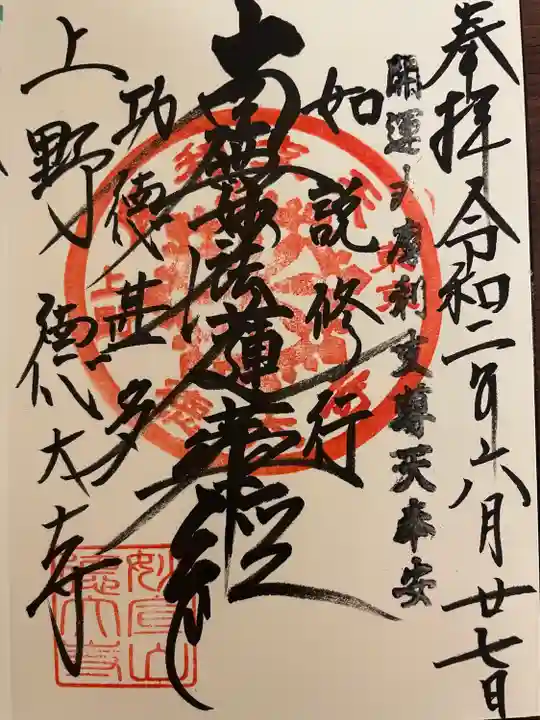 奉拝 令和二年六月廿七日
開運 摩利支尊天奉安
如説修行
南無妙法蓮華経
功徳甚多
上野 徳大寺
妙宣山
徳大寺